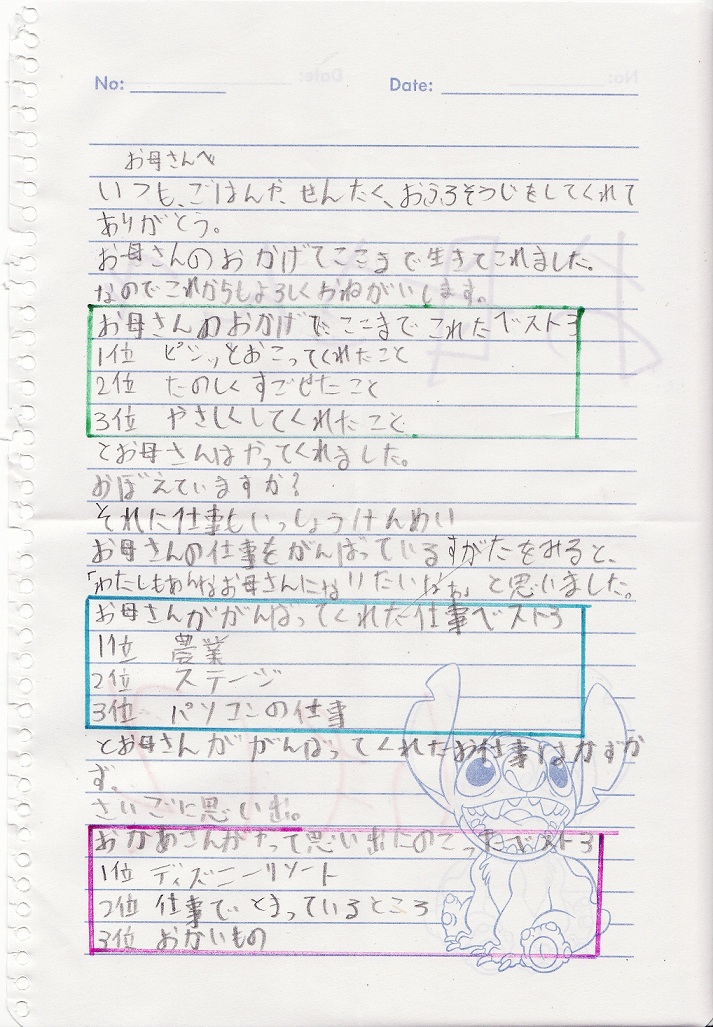 No: Date:
お母さんへ
いつも、ごはんや、せんたく、おふろそうじをしてくれて
ありがとう。
お母さんのおかげでここまで生きてこれました。
なのでこれからもよろしくおねがいします。
お母さんのおかげでここまでこれたベスト3
1位 ビシッとおこってくれたこと
2位 たのしくすごせたこと
3位 やさしくしてくれたこと
とお母さんはやってくれました。
おぼえていますか?
それに仕事もいっしょうけんめい
お母さんの仕事をがんばっているすがたをみると、
「わたしもあんなお母さんになりたいなぁ」と思いました。
お母さんががんばってくれた仕事ベスト3
1位 農業
2位 ステージ
3位 パソコンの仕事
とお母さんががんばってくれたお仕事はかずか
ず。
さいごに思い出。
おかあさんがやって思い出にのこったベスト3
1位 ディズニーリゾート
2位 仕事でとまっているところ
3位 おかいもの